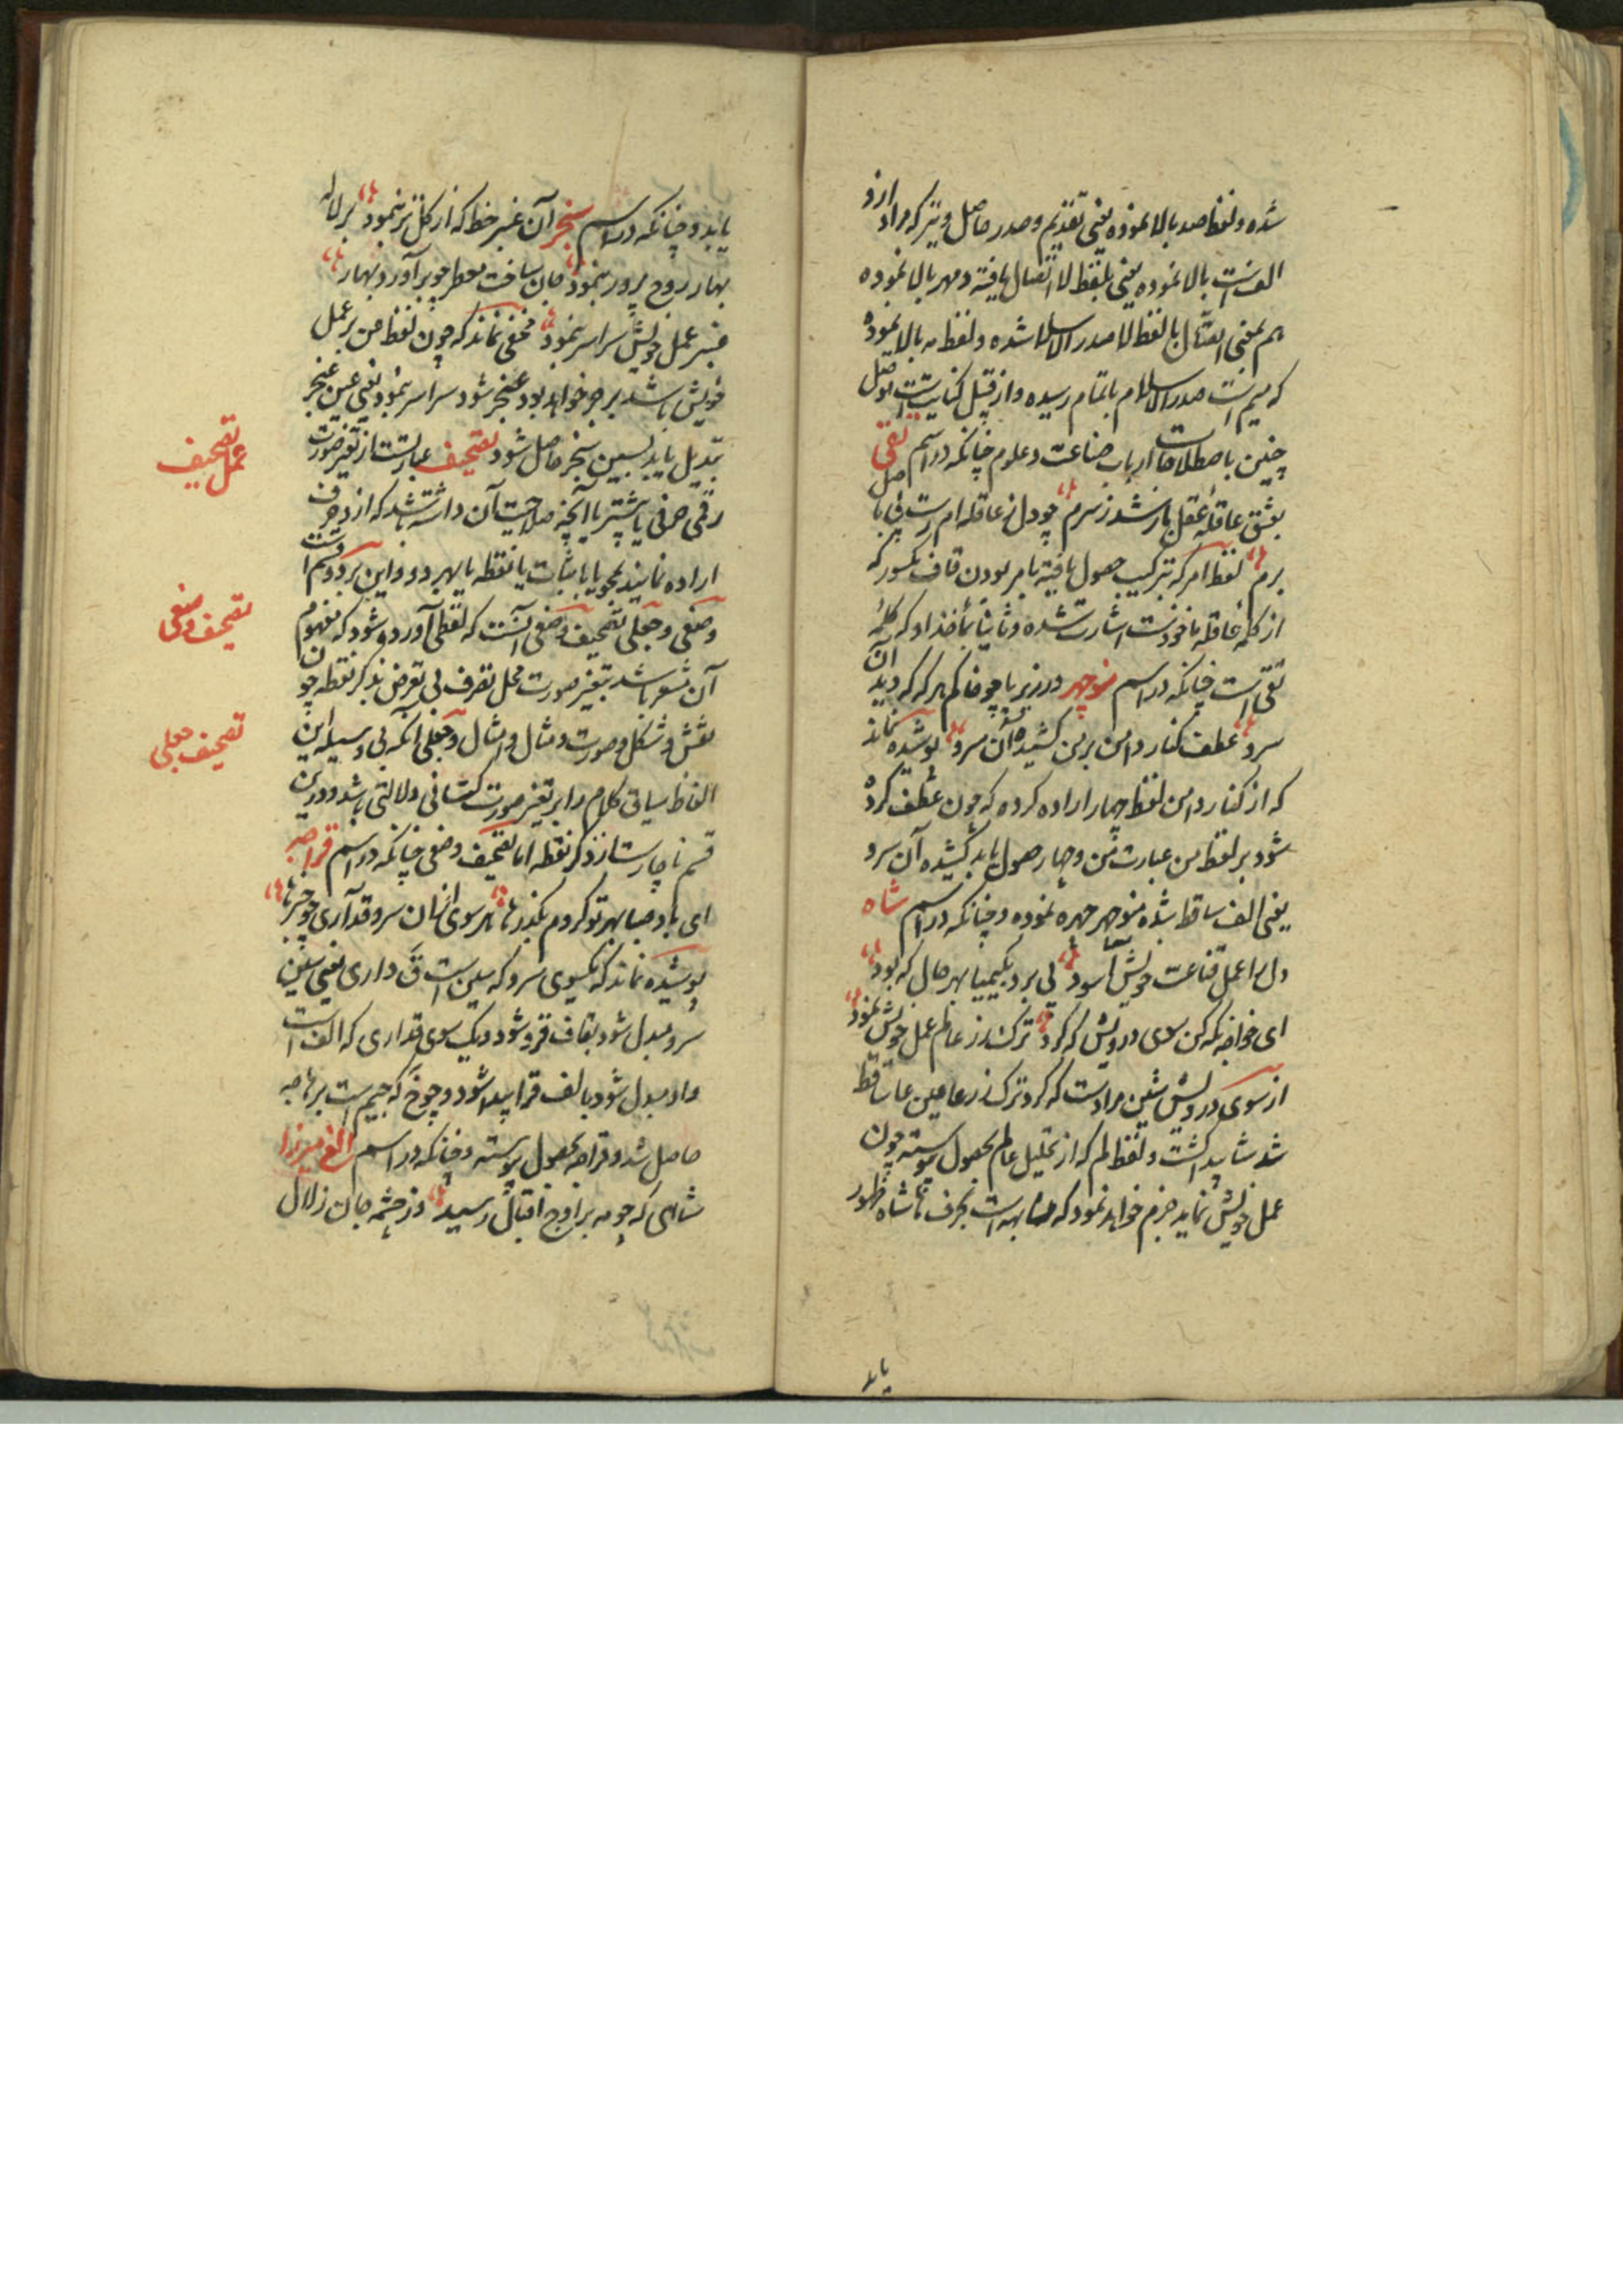 شده و لفظ صد بالا نموده یعنی تقدیم و صدر حاصل و تیز که مراد ازو
الف است بالا نموده یعنی بلفظ لا اتصال یافته و مهر بالا نموده
هم بمعنی اتصال بالفظ لا صدر الاسلا شده و لفظ مه بالا نموده
که میم است صدر الاسلام باتمام رسیده و از قبیل کنایتست
چنین باصطلاحات ارباب صناعت و علوم چنانکه در اسم تقی
بعشق عاقله عقل باز شد ز سرم چو دل ز عاقله ام رست پی باصل
برم لفظ امر که بترکیب حصول یافته بامر بودن قاف مکسور که
از کلمه عاقله ماخوذست اشارت شده و ثانیا بمأخذ او که کلمه
تقی است چنانکه در اسم منوچهر در زیر پا چو خاکم هر که که دید آن
سرو عطف کنار دامن بر من کشیده آن سرو پوشیده نماند
که از کنار دامن لفظ چهار اراده کرده که چون عطف کرده
شود بر لفظ من عبارت من و چهار حصول یابد کشیده آن سرو
یعنی الف ساقط شده منوچهر چهره نموده و چنانکه در اسم شاه
دل را عمل قناعت خویش آسود پی برد بکیمیا بهر حال که بود
ای خواجه نکه کن سوی درویش که کرد ترک زر عالم عمل خویش نمود
از سوی درویش شین مرادست که کرد ترک زر عا عین عا ساقط
شد شا پیدا گشت و لفظ لم که از تحلیل عالم بحصول پیوسته چون
عمل خویش نماید جزم خواهد نمود که مشابهه است بحرف ها شاه ظهور
یابد
یابد و چنانکه در اسم سنجر آن عنبر خط که از گل تر بنمود بر لاله
بهار روح پرور بنمود جان ساخت معطر چو برآورد بهار
عنبر عمل خویش سراسر بنمود مخفی نماند که چون لفظ من بر عمل
خویش باشد بر جر خواهد بود عنجر شود سراسر بنمود یعنی عین عنجر
تبدیل یابد بسین سنجر حاصل شود تصحیف عبارتست از تغیر صورت
رقمی حرفی یا بیشتر یا آنچه صلاحیت آن داشته باشد که از و حرف
اراده نمایند بمحو یا باثبات یا نقطه یا بهر دو و این بر دو قسم است
وضعی و جعلی تصحیف وضعی آنست که لفظی آورده شود که مفهوم
آن مشعر باشد بتغیر صورت محل تصرف بی تعرض بذکر نقطه چون
نقش و شکل و صورت و مثال و امثال و جعلی آنکه بی وسیله این
الفاظ سیاق کلام را بر تغیر صورت کتابی دلالتی باشد و درین
قسم ناچارست از ذکر نقطه اما تصحیف وضعی چنانکه در اسم قراجه
ای باد صبا بهر تو کردم گذرها هر سوی ازان سرو قد آری چو خبرها
پوشیده نماند که یکسوی سرو که سین است ق داری یعنی سین
سرو مبدل شود بقاف قرو شود و یک سوی قد آری که الف است
واو مبدل شود بالف قرا پیدا شود و چو خ که جیم است برها جه
حاصل شد و قراجه بحصول پیوسته و چنانکه در اسم الغ میرزا
شاهی که چو مه بر اوج اقبال رسید وز چشمه جان زلال
عمل تصحیف
تصحیف وضعی
تصحیف جعلی